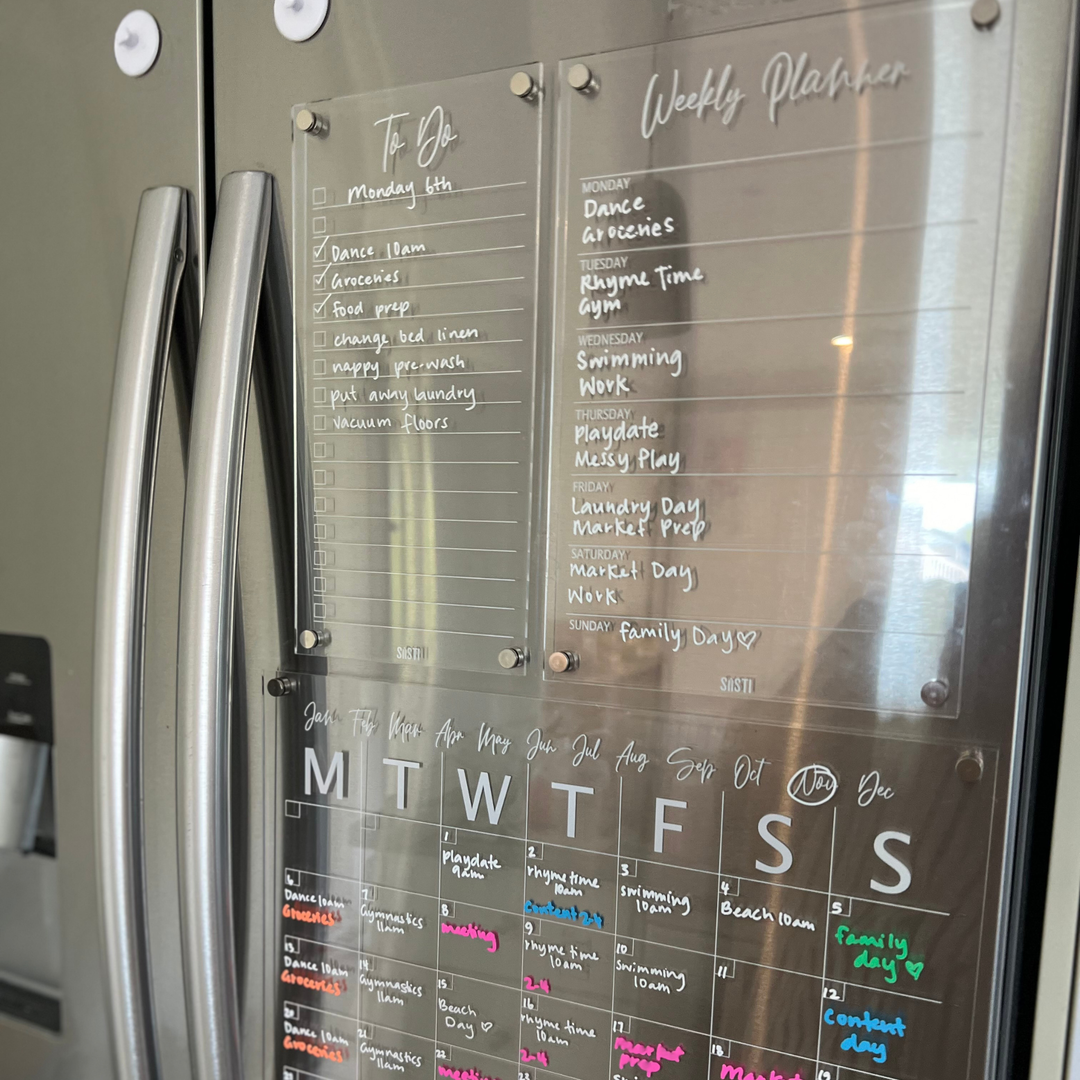 To Do
Monday 6th
Dance 10am
Groceries
food prep
change bed linen
nappy pre-wash
put away laundry
vacuum floors
Weekly Planner
MONDAY
Dance
Groceries
TUESDAY
Rhyme Time
Gym
WEDNESDAY
Swimming
Work
THURSDAY
playdate
Messy Play
FRIDAY
Laundry Day
Market Prep
SATURDAY
Market Day
Work
SUNDAY family Day♡
Jan Feb Mar Apr May Jun Jul Aug Sep Oct Nov Dec
M T W T F S S
1
playdate
9am
2
rhyme time
10am
Content 2-4
3
swimming
10am
4
Beach 10am
5
family
day ♡
6
Dance 10am
Groceries
7
Gymnastics
11am
8
meeting
9
rhyme time
10am
2-4
10
swimming
10am
11
12
Content
day
13
Dance 10am
Groceries
14
Gymnastics
11am
15
Beach
Day ♡
16
rhyme time
10am
2-4
17
market
prep
18
Market
19
20
Dance 10am
Groceries
21
Gymnastics
11am
22
23